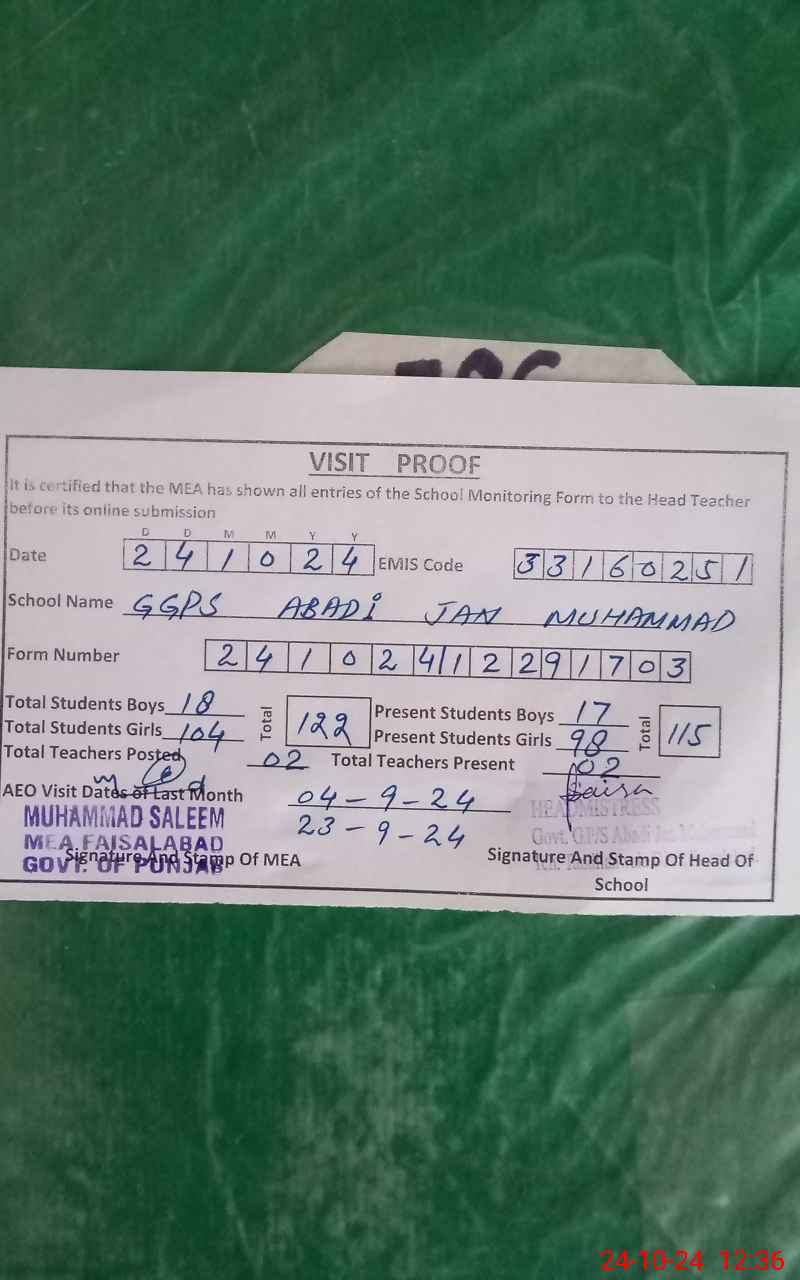 VISIT PROOF
It is certified that the MEA has shown all entries of the School Monitoring Form to the Head Teacher
before its online submission
D D M M Y Y
Date 2 4 1 0 2 4 EMIS Code 3 3 1 6 0 2 5 1
School Name GGPS ABADI JAN MUHAMMAD
Form Number 2 4 1 0 2 4 1 2 2 9 1 7 0 3
Total Students Boys 18 Total 122 Present Students Boys 17 Total 115
Total Students Girls 104 Present Students Girls 98
Total Teachers Posted 02 Total Teachers Present 02
AEO Visit Dates of Last Month 04-9-24
23-9-24
MUHAMMAD SALEEM
MEA FAISALABAD
GOVT. OF PUNJAB
Signature And Stamp Of MEA
HEADMISTRESS
Signature And Stamp Of Head Of
School
24-10-24 12:36